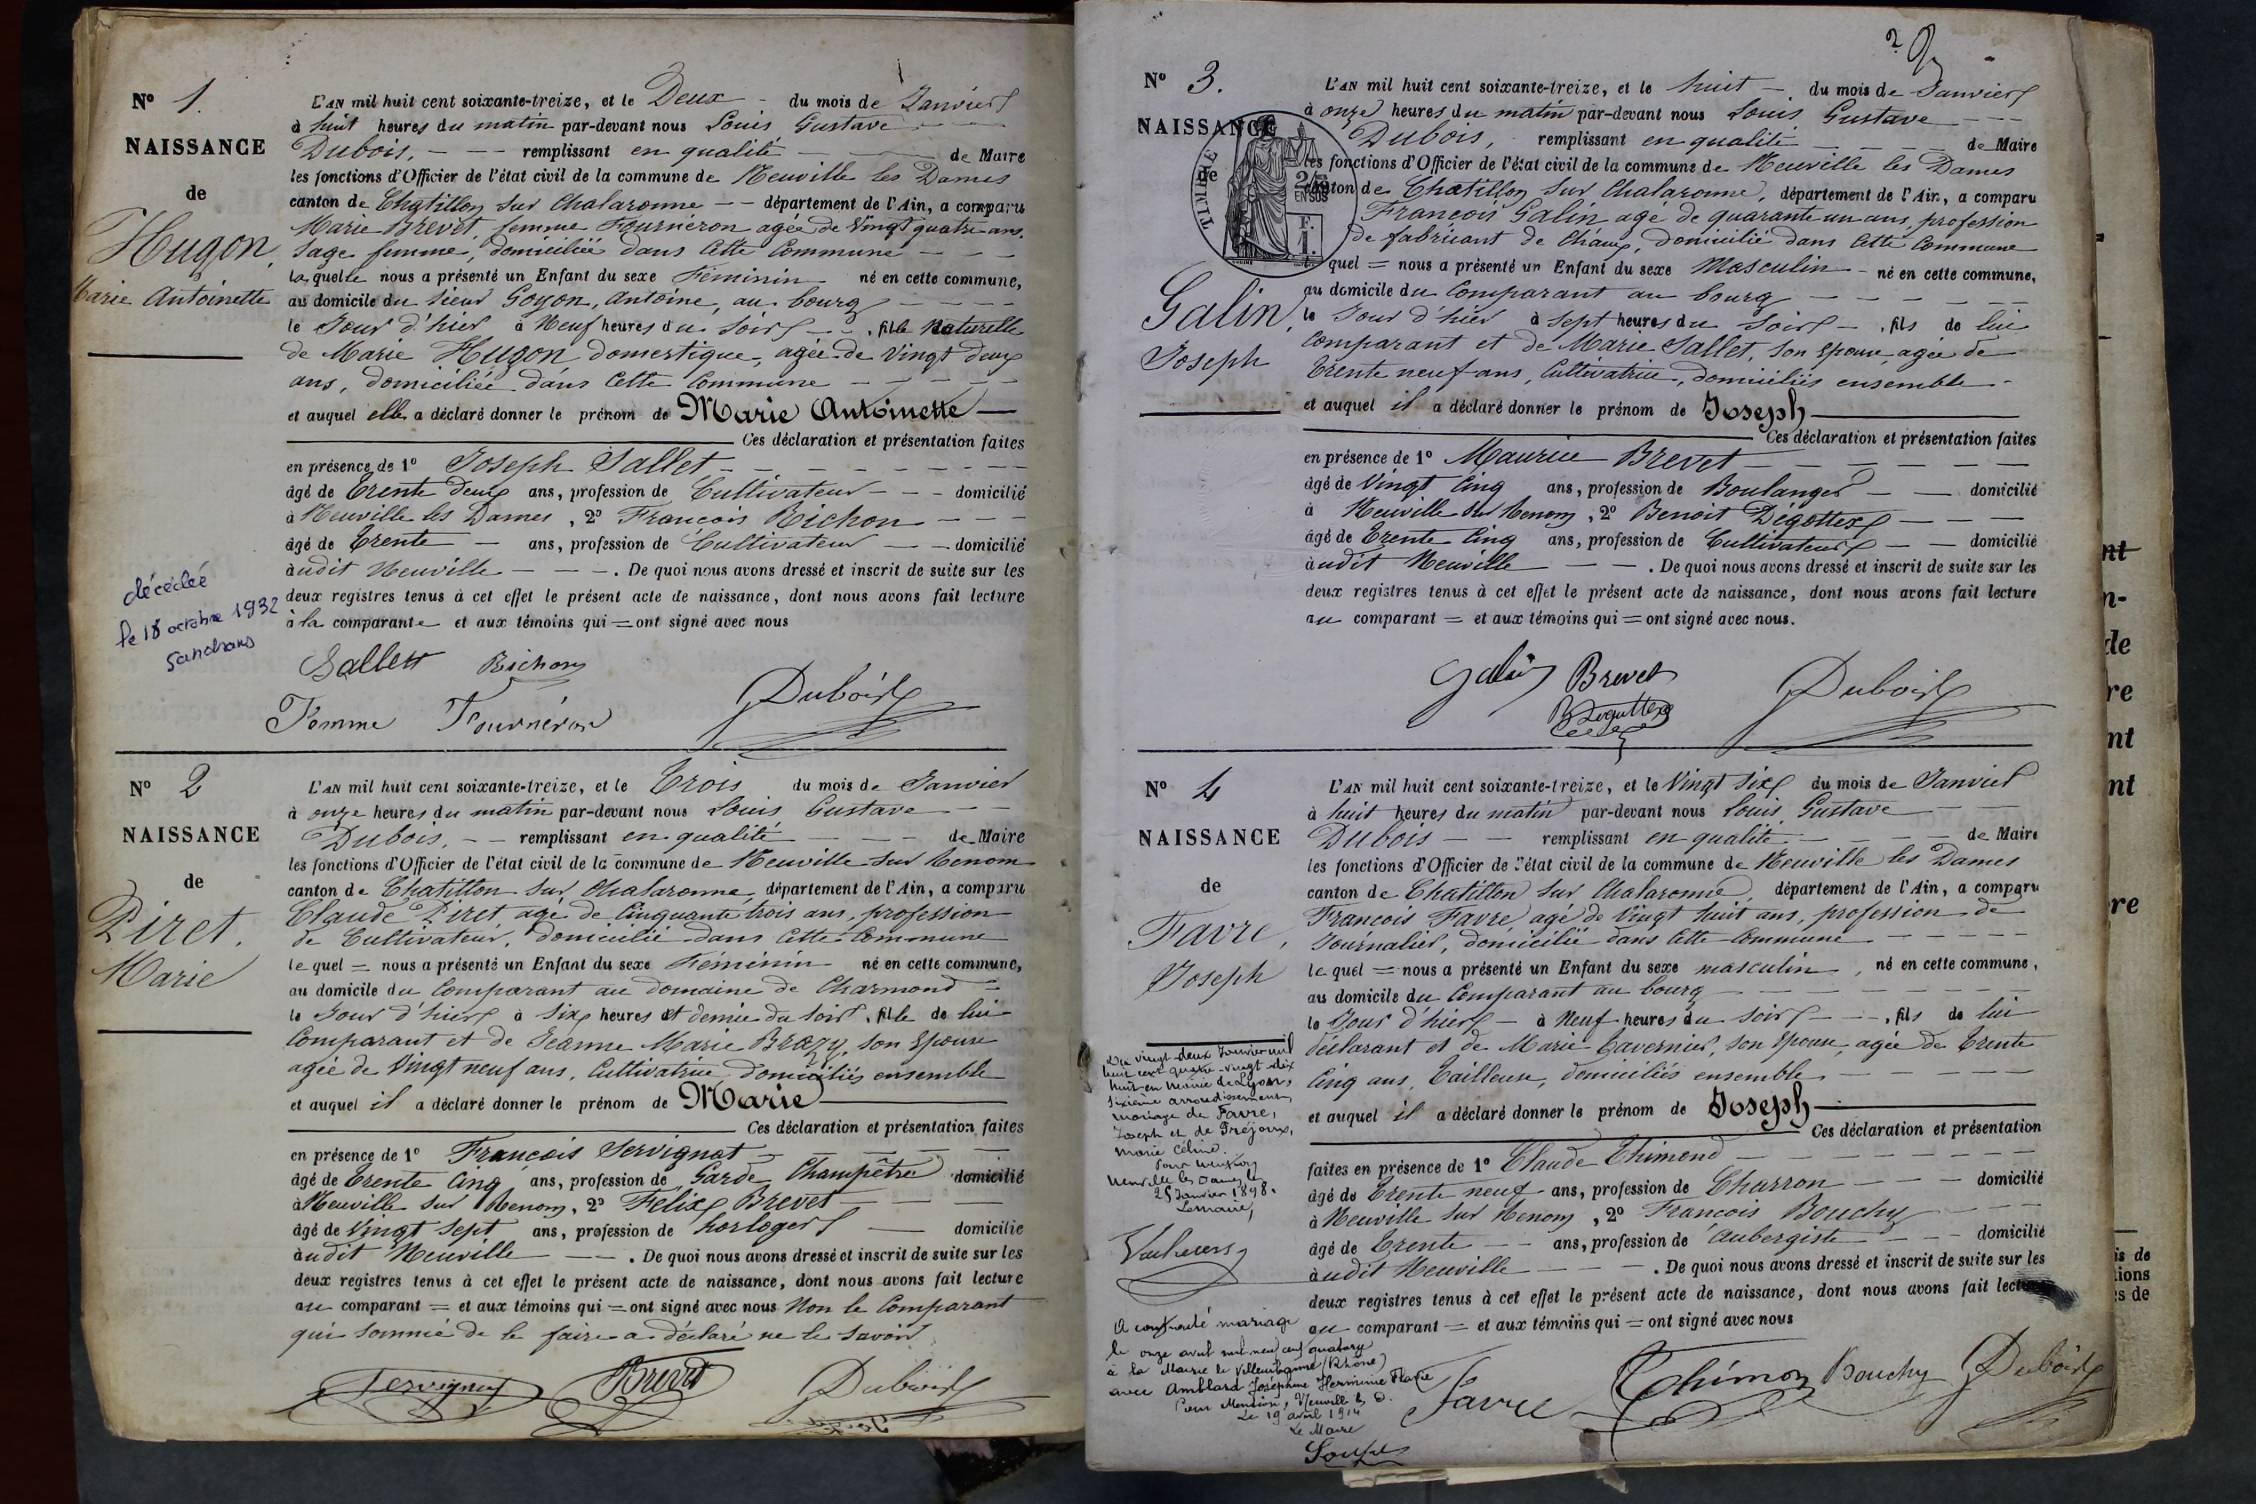 Nº 1.
NAISSANCE
de
Hugon,
Marie Antoinette
L'AN mil huit cent soixante-treize, et le Deux - du mois de Janvier
à huit heures du matin par-devant nous Louis Gustave
Dubois, - - remplissant en qualité - de Maire
les fonctions d'Officier de l'état civil de la commune de Neuville les Dames
canton de Chatillon sur Chalaronne - - département de l'Ain, a comparu
Marie Brevet, femme Fournéron agée de Vingt quatre ans,
Sage femme, domiciliée dans cette Commune - - -
laquelle nous a présenté un Enfant du sexe Féminin né en cette commune,
au domicile du Sieur Goyon, Antoine, au bourg - - - -
le Jour d'hier à Neuf heures du Soir - - , fille Naturelle
de Marie Hugon domestique, agée de Vingt deux
ans, domiciliée dans cette Commune - - - - -
et auquel elle a déclaré donner le prénom de Marie Antoinette —
Ces déclaration et présentation faites
en présence de 1º Joseph Sallet - - - - - - - -
âgé de Trente Deux ans, profession de Cultivateur - - - domicilié
à Neuville les Dames, 2º François Richon - - -
âgé de Trente - ans, profession de Cultivateur - - domicilié
àudit Neuville - - - . De quoi nous avons dressé et inscrit de suite sur les
deux registres tenus à cet effet le présent acte de naissance, dont nous avons fait lecture
à la comparante et aux témoins qui = ont signé avec nous
décédée
le 18 octobre 1932
Sandrans
Sallet Richon
Femme Fournéron Dubois
Nº 2
NAISSANCE
de
Piret,
Marie
L'AN mil huit cent soixante-treize, et le Trois du mois de Janvier
à onze heures du matin par-devant nous Louis Gustave - -
Dubois, - - remplissant en qualité - - - de Maire
les fonctions d'Officier de l'état civil de la commune de Neuville sur Renom
canton de Chatillon sur Chalaronne, département de l'Ain, a comparu
Claude Piret agé de Cinquante trois ans, profession
de Cultivateur, domicilié dans cette Commune
lequel = nous a présenté un Enfant du sexe Féminin né en cette commune,
au domicile du Comparant au domaine de Charmond -
le Jour d'hier à Six heures et demie du Soir, fille de lui
Comparant et de Jeanne Marie Brazy, son Epouse
agée de Vingt neuf ans, Cultivatrice, domiciliés ensemble
et auquel il a déclaré donner le prénom de Marie
Ces déclaration et présentation faites
en présence de 1º François Servignat - - - -
âgé de Trente Cinq ans, profession de Garde Champêtre domicilié
à Neuville sur Renom, 2º Felix Brevet - -
âgé de Vingt Sept ans, profession de horloger - domicilié
àudit Neuville - - . De quoi nous avons dressé et inscrit de suite sur les
deux registres tenus à cet effet le présent acte de naissance, dont nous avons fait lecture
au comparant = et aux témoins qui = ont signé avec nous Non le Comparant
qui Sommé de le faire a déclaré ne le Savoir
Servignat Brevet Dubois
2
Nº 3.
NAISSANCE
de
Galin,
Joseph
TIMBRE
2/5
EN SUS
F.
1.
L'AN mil huit cent soixante-treize, et le huit - du mois de Janvier
à onze heures du matin par-devant nous Louis Gustave - - -
Dubois, remplissant en qualité - - - - de Maire
les fonctions d'Officier de l'état civil de la commune de Neuville les Dames
canton de Chatillon sur Chalaronne, département de l'Ain, a comparu
François Galin agé de quarante un ans, profession
de fabricant de Chaux, domicilié dans cette Commune
quel = nous a présenté un Enfant du sexe Masculin - né en cette commune,
au domicile du Comparant au bourg - - - - - -
le Jour d'hier à Sept heures du Soir - , fils de lui
Comparant et de Marie Sallet, Son Epouse, agée de
Trente neuf ans, Cultivatrice, domiciliés ensemble -
et auquel il a déclaré donner le prénom de Joseph
Ces déclaration et présentation faites
en présence de 1º Maurice Brevet - - - - - -
âgé de Vingt Cinq ans, profession de Boulanger - - domicilié
à Neuville sur Renom, 2º Benoit Dégottex - - -
âgé de Trente Cinq ans, profession de Cultivateur - - domicilié
àudit Neuville - - . De quoi nous avons dressé et inscrit de suite sur les
deux registres tenus à cet effet le présent acte de naissance, dont nous avons fait lecture
au comparant = et aux témoins qui = ont signé avec nous.
Galin Brevet
Dubois
Nº 4
NAISSANCE
de
Favre,
Joseph
L'AN mil huit cent soixante-treize, et le Vingt Six du mois de Janvier
à huit heures du matin par-devant nous Louis Gustave - -
Dubois - - remplissant en qualité - - - - de Maire
les fonctions d'Officier de l'état civil de la commune de Neuville les Dames
canton de Chatillon sur Chalaronne, département de l'Ain, a comparu
François Favre, agé de Vingt huit ans, profession de
Journalier, domicilié dans cette Commune - - - - -
lequel = nous a présenté un Enfant du sexe masculin, né en cette commune,
au domicile du Comparant au bourg - - - - - - -
le Jour d'hier - à Neuf heures du Soir - - , fils de lui
déclarant et de Marie Tavernier, Son Epouse, agée de Trente
Cinq ans, Tailleuse, domiciliés ensemble - - - - -
et auquel il a déclaré donner le prénom de Joseph
Ces déclaration et présentation
faites en présence de 1º Claude Thimond - - - - - -
âgé de Trente neuf ans, profession de Charron - - - domicilié
à Neuville sur Renom, 2º François Bouchy - - -
âgé de Trente - - ans, profession de Aubergiste - - - domicilié
àudit Neuville - - - . De quoi nous avons dressé et inscrit de suite sur les
deux registres tenus à cet effet le présent acte de naissance, dont nous avons fait lecture
au comparant = et aux témoins qui = ont signé avec nous
Du vingt-deux Janvier mil
huit cent quatre-vingt-dix
huit en mairie de Lyon,
sixième arrondissement,
mariage de Favre,
Joseph et de Fréjoux,
Marie Céline.
Pour mention
Neuville les Dames, le
25 Janvier 1898.
Le maire,
A contracté mariage
le onze avril mil neuf cent quatorze
à la Mairie de Villeurbanne (Rhône)
avec Amblard Joséphine Herminie Marie
Pour Mention, Neuville les D.
Le 19 avril 1914
Le Maire
Favre Thimon Bouchy Dubois